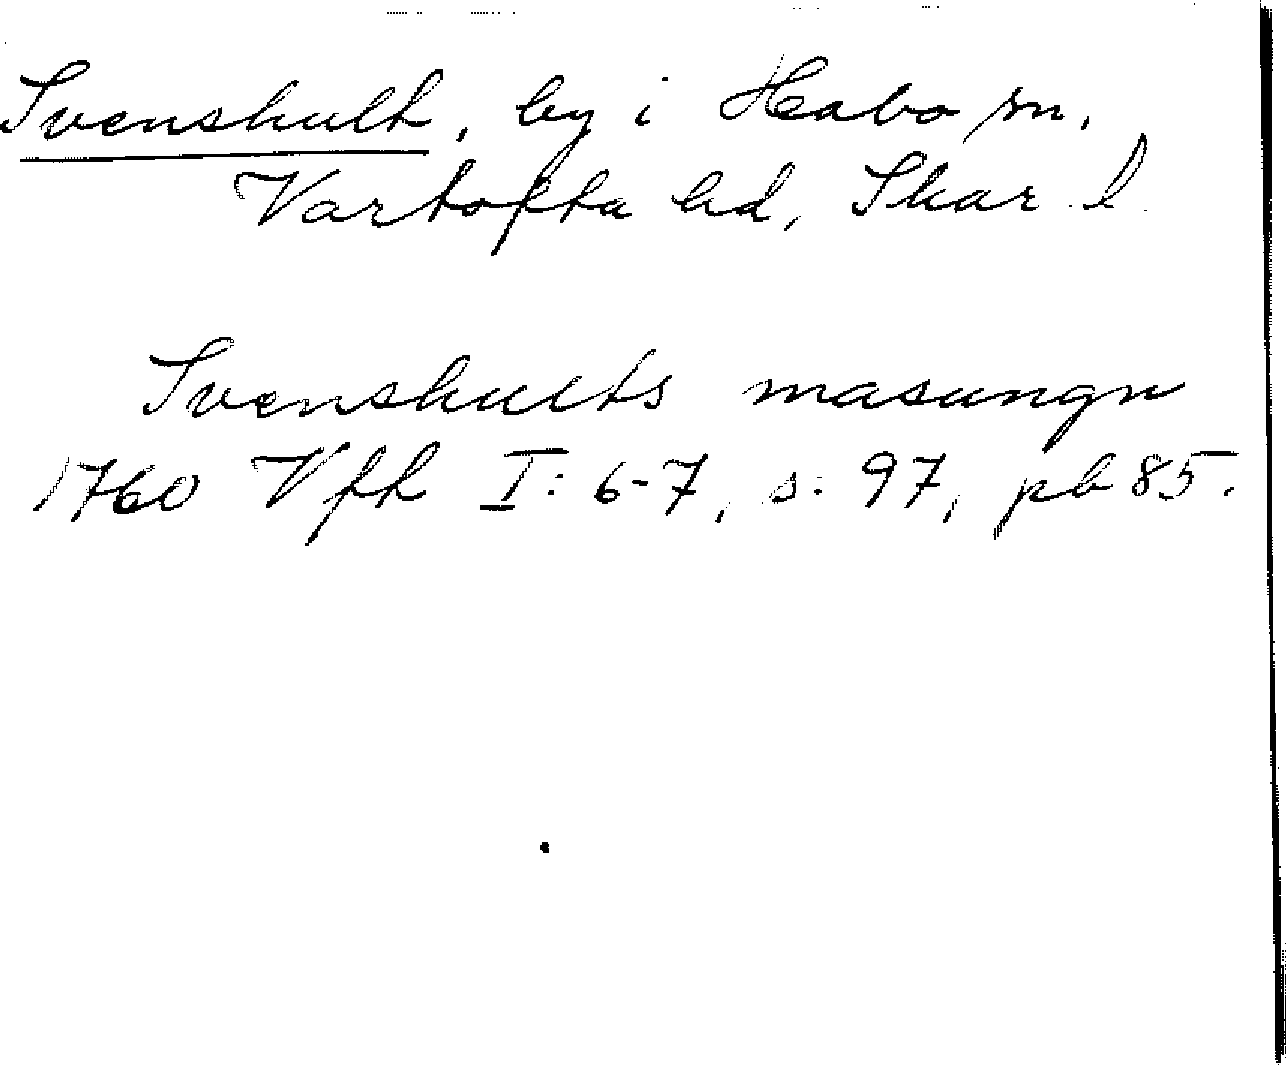 Svenshult, by i Habo sn,
Vartofta hd, Skar. l.
Svenshults masungn
1760 Vfk I: 6-7, s. 97, pb 85.